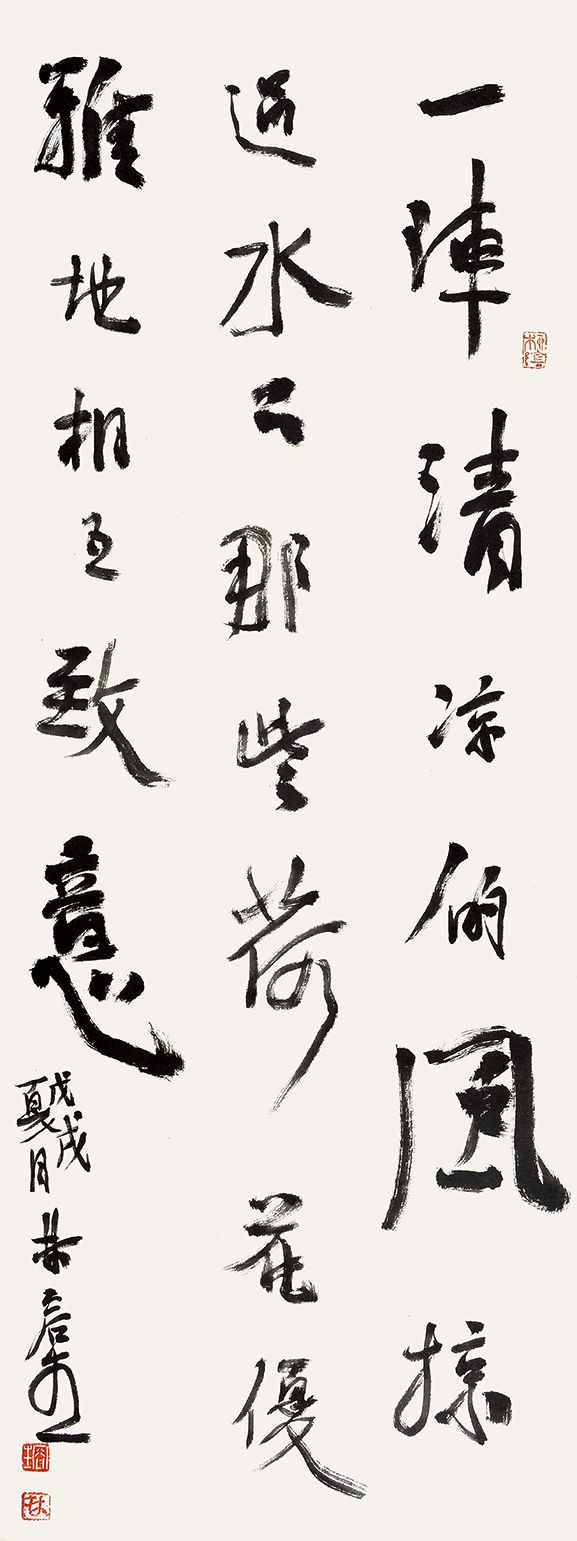 一陣清凉的風掠
過水那些荷花優
雅地相互致意
戊戌
夏月林